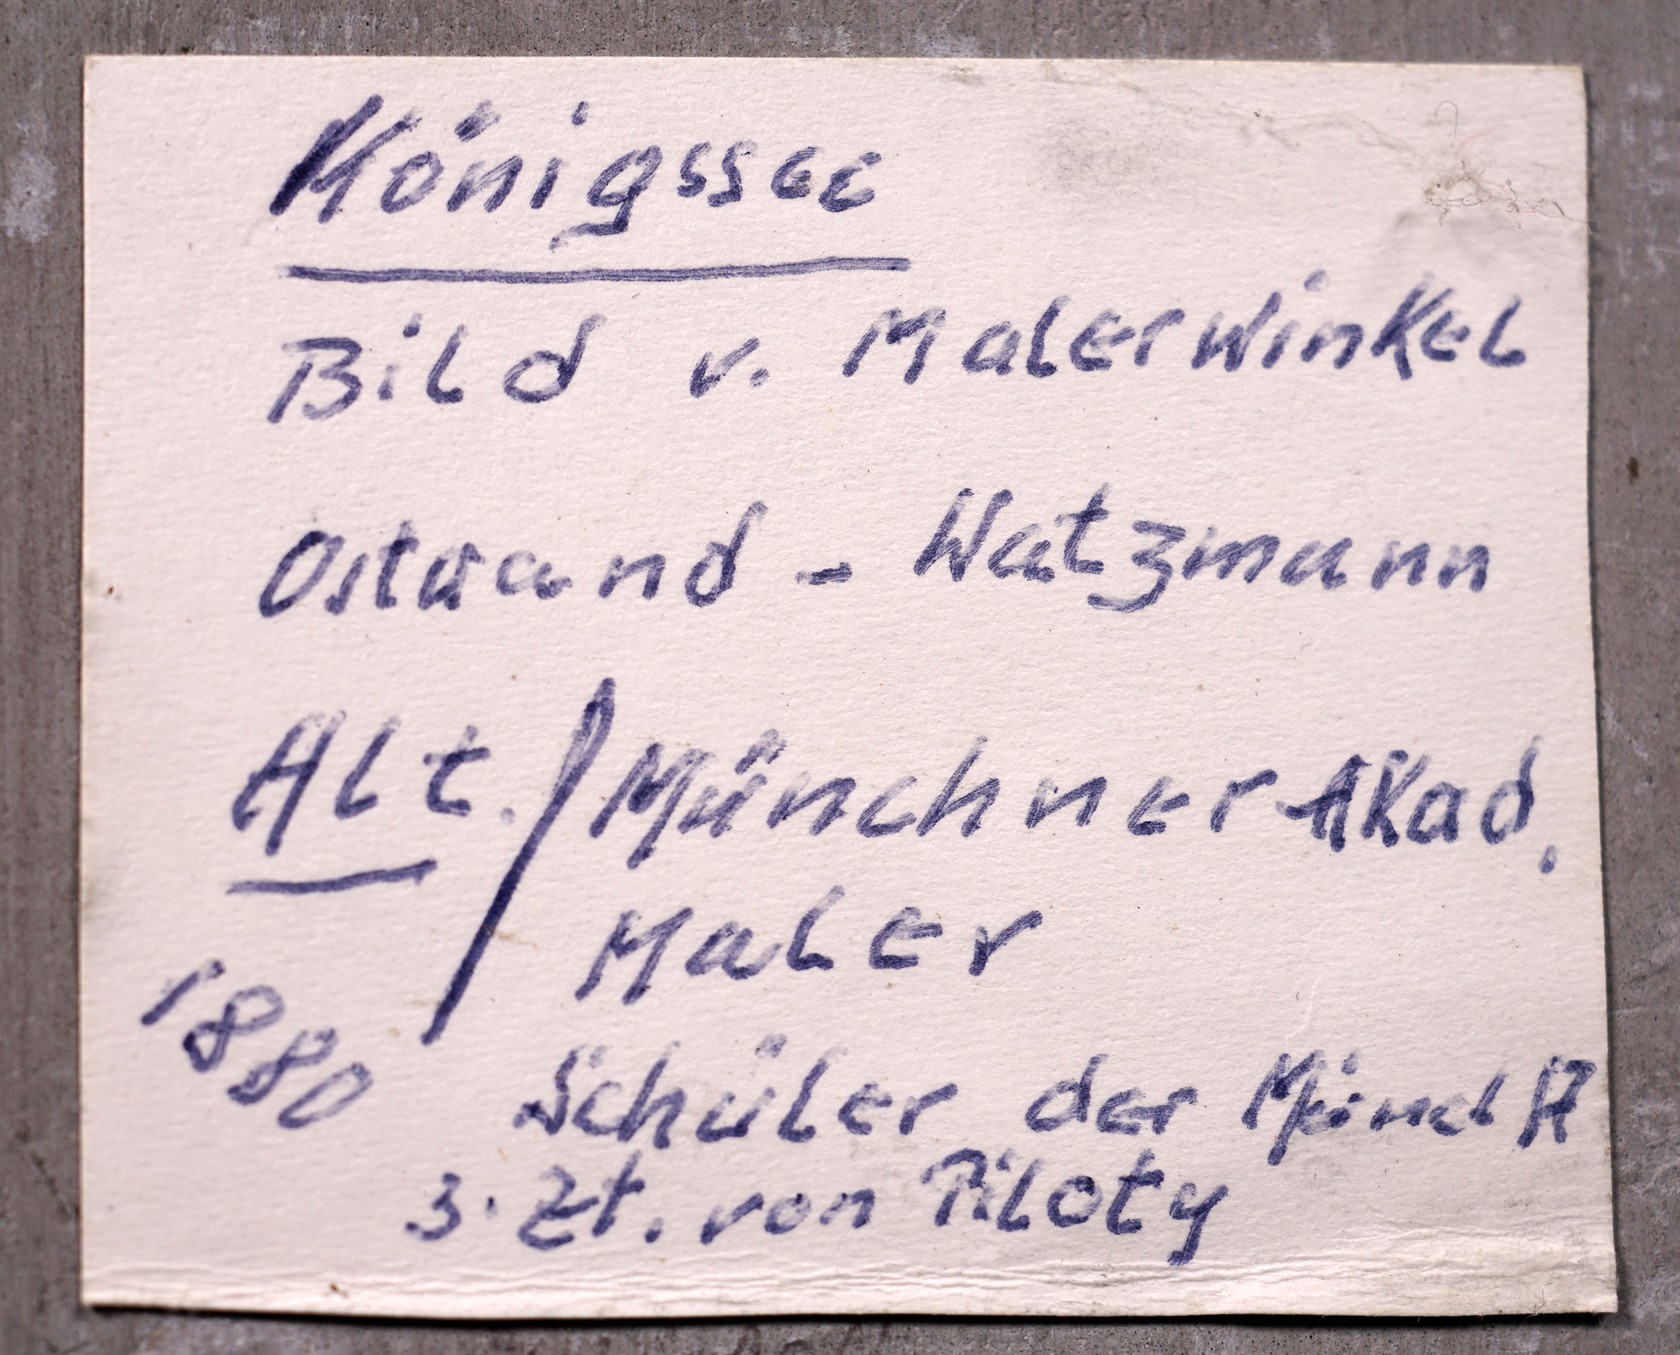 Königssee
Bild v. Malerwinkel
Ostwand - Watzmann
Alt. / Münchner Akad.
Maler
1880
Schüler der Münch A
z. Zt. von Piloty